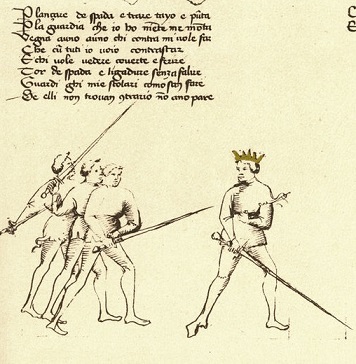 Plançare de spada e trare tayo e punta
Per la guardia che io ho
Vegna a uno a uno chi contra mi vole fare
Che cum tuti io voio contrastar
E chi vole vedere coverte e ferire
Tor de spada e ligadure sença falire
Guardi ghi mie scolari como san fare
Se elli non trovan contrario non ano pare